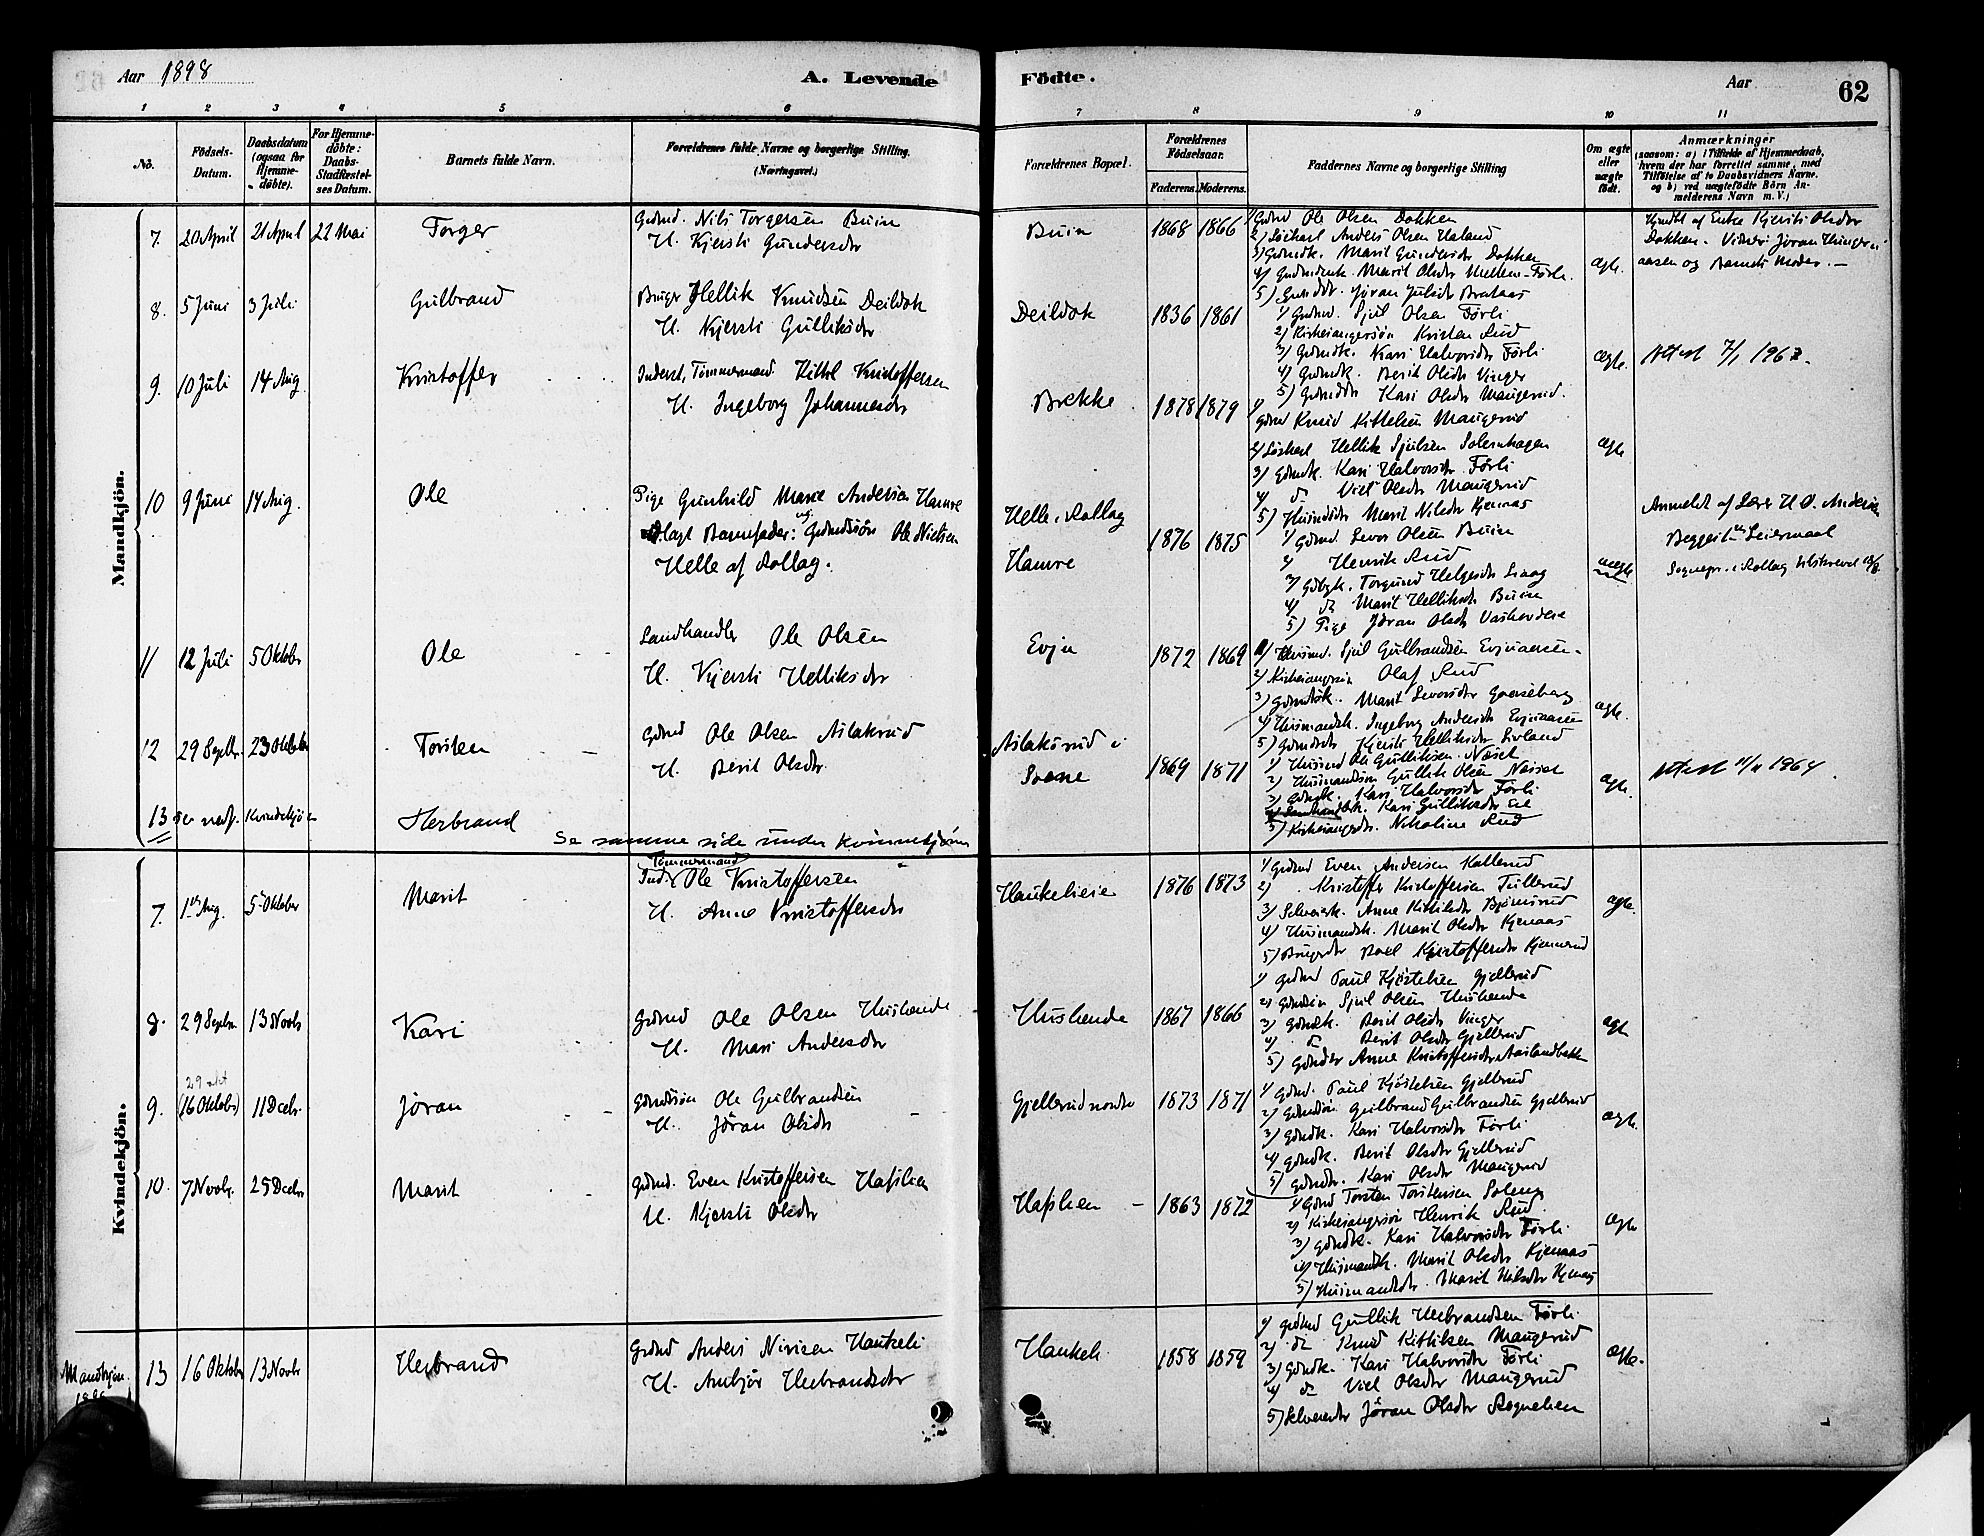 Aar 1898
A. Levende
Födte.
Aar
62
1 2 3 4 5 6 7 8 9 10 11
No.
Födsels-Datum.
Daabsdatum (ogsaa for Hjemme-döbte).
For Hjemme-döbte: Daabs-Stadfæstel-ses Datum.
Barnets fulde Navn.
Forældrenes fulde Navne og borgerlige Stilling.
(Næringsvei.)
Forældrenes Bopæl.
Forældrenes Födselsaar.
Faderens. Moderens.
Faddernes Navne og borgerlige Stilling
Om ægte eller uægte födt.
Anmærkninger
(saasom: a) i Tilfælde af Hjemmedaab, hvem der har forrettet samme, med Tilföielse af to Daabsvidners Navne. og b) ved uægtefödte Börn An-melderens Navn m. V.)
Mandkjön.
7. 20 April 21 April 22 Mai Torger
Gdmd. Nils Torgersen Buin
H. Kjersti Gundersdr
Buin 1868 1866
1) Gdmd Ole Olsen Dokken
2) Löskarl Anders Olsen Haland
3) Gdmdk. Marit Gundersdr Dokken
4) Gdmdenk. Marit Olsdr Förli.
5) Jöran Juelsdr Brataas
ægte.
Hjmdbt af Enke Kjersti Olsdr
Dokken. Vidner: Jöran
aasen og Barnets Moder. —
8. 5 Juni 3 Juli Gulbrand
Bruger Hellik Knudsen Deildok
H. Kjersti Gulliksdr
Deildok 1836 1861
1) Gdmd. Sjul Olsen Förli
2) Kirkesangersön Kristen Rud
3) Gdmdk. Kari Halvorsdr Förli
4) Gdmdk. Berit Olsdr Vinger
5) Gdmddr Kari Olsdr Maugerud.
ægte.
Attest 7/1 1962.
9. 10 Juli 14 Aug. Kristoffer
Inderst, Tömmermand Kittel Kristoffersen
H. Ingeborg Johannesdr
Brekke 1878 1879
1) Gdmd Knud Kittelsen Maugerud
2) Löskarl Hellik Sjulsen Solemhagen
3) Gdmdk. Kari Halvorsdr Förli
4) do Viel Olsdr Maugerud
5) Husmdsdr Marit Nilsdr Kjenaas
ægte
10 9 Juni 14 Aug. Ole
Pige Gunhild Marie Andersen Hamre
Udlagt Barnefader: ug. Gdmdssön Ole Nielsen
Helle af Rollag.
Helle i Rollag
Hamre
1876 1875
1) Gdmd. Levor Olsen Buin
2) Henrik Rud
3) Gdbgk. Torgund Helgesdr Liaag
4) do Marit Helliksdr Buin
5) Pige Jöran Olsdr
uægte
Anmeldt af Lærer H. O. Andersen
Begges 1ste Leiermaal
Sognepr. i Rollag tilskrevet
11 12 Juli 5 Oktober Ole
Landhandler Ole Olsen
H. Kjersti Helliksdr
Evju 1872 1869
1) Husmd. Sjul Gulbrandsen Evjuaasen
2) Kirkesangersön Olaf Rud
3) Gdmdsk. Marit Levorsdr
4) Husmandsk. Ingeborg Andersdr Evjuaasen
5) Gdmdsdr Kjersti Helliksdr Livland
ægte.
12 29 Septbr. 23 Oktober Torsten
Gdmd Ole Olsen Aslaksrud
H. Berit Olsdr.
Aslaksrud i
Svene 1869 1871
1) Husmd Ole Gulliksen Næset
2) Husmandssön Gullik Olsen Næset
3) Gdmdk. Kari Halvorsdr Förli
4) Kari Gulliksdr Eie
5) Kirkesangersdr. Nikoline Rud
ægte.
Attest 11/11 1964.
13 Se nedf. Kvindekjön Herbrand
Se samme side under kvinnekjönn
Kvindekjön.
7. 1ste Aug. 5 Oktober Marit
Tømmermand
Ind. Ole Kristoffersen
H. Anne Kristoffersdr
Haukelieie 1876 1873
1) Gdmd Even Andersen Kallerud
2) Kristoffer Kristoffersen Tullerud
3) Selveierk. Anne Kittilsdr Björnsrud
4) Husmandsk. Marit Olsdr Kjenaas
5) Brugerdr Boel Kristoffersdr Kjennerud
ægte.
8. 29 Septbr. 13 Novbr Kari
Gdmd Ole Olsen Hushende
H. Mari Andersdr
Hushende 1867 1866
1) Gdmd Paul Kjöstelsen Gjellerud
2) Gdmdsön Sjul Olsen Hushende
3) Gdmdk. Berit Olsdr Vinger
4) do Berit Olsdr Gjellerud
5) Gdmdsdr Anne Kristoffersdr
ægte
29 okt
9. (16 Oktober) 11 Decbr. Jöran
Gdmdssön Ole Gulbrandsen
H. Jöran Olsdr
Gjellerud nordre 1873 1871
1) Gdmd. Paul Kjöstelsen Gjellerud
2) Gdmdssön Gulbrand Gulbrandsen Gjellerud
3) Gdmdk. Kari Halvorsdr Förli
4) Gdmdk. Berit Olsdr Gjellerud
5) Gdmdsdr. Kari Olsdr Maugerud
ægte.
10. 7 Novbr. 25 Decbr Marit
Gdmd. Even Kristoffersen Haslien
H. Kjersti Olsdr
Haslien 1863 1872
1) Gdmd Torsten Torstensen Solem
2) Kirkesangersön Henrik Rud.
3) Gdmdk. Kari Halvorsdr Förli
4) Husmandsk. Marit Olsdr Kjenaas
5) Husmandsdr. Marit Nilsdr Kjenaas
ægte
Mandkjön.
13 16 Oktober 13 Novbr Herbrand
Gdmd Anders Nirisen Haukeli
H. Anbjör Herbrandsdr
Haukeli 1858 1859
1) Gdmd Gullik Herbrandsen Förli
2) do Knud Kittilsen Maugerud
3) Gdmdk. Kari Halvorsdr Förli
4) do Viel Olsdr Maugerud
5) Selveierdr Jöran Olsdr Rognelien
ægte.